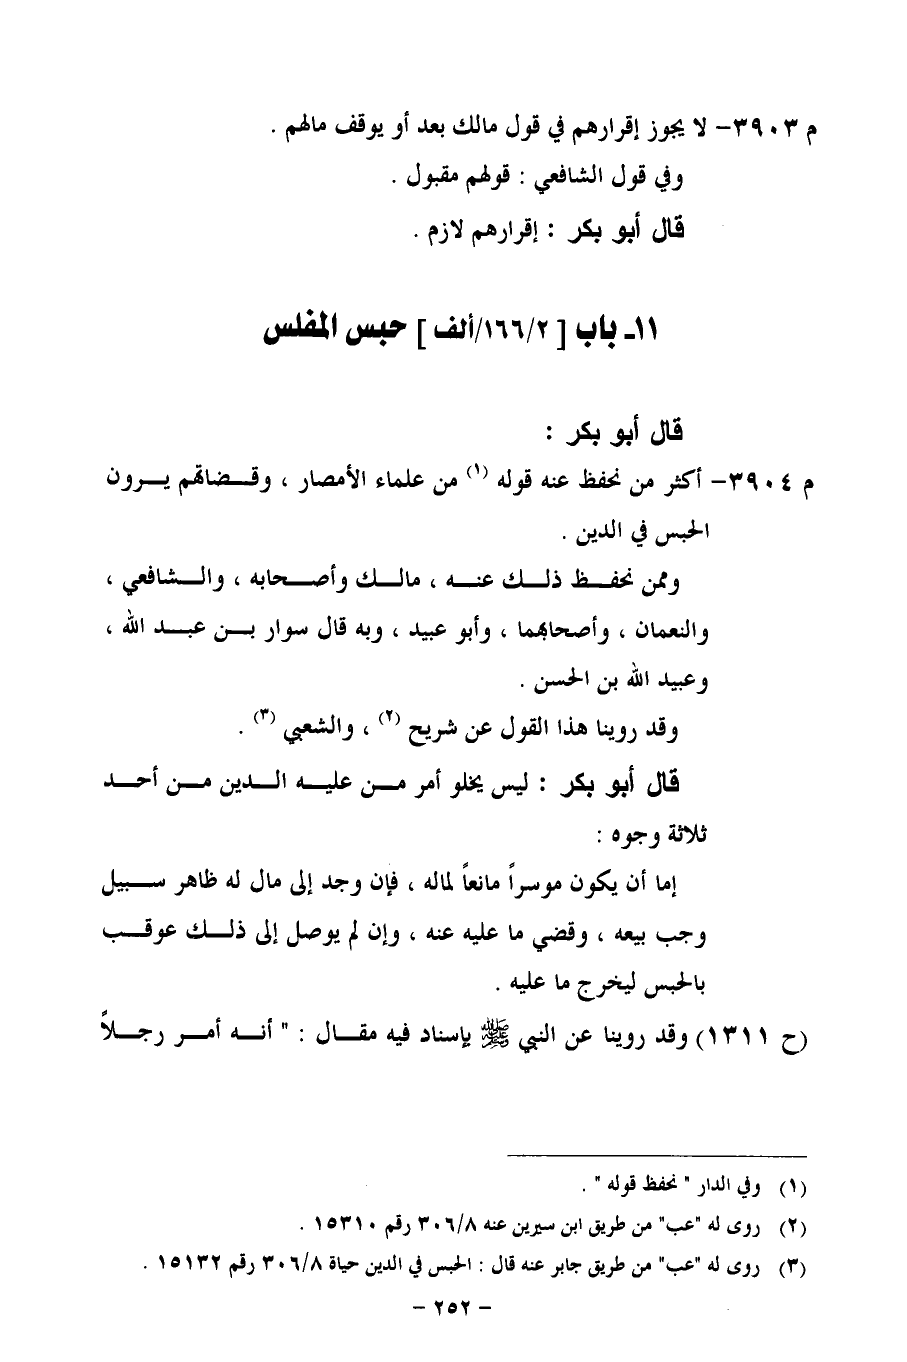 م ٣٩٠٣- لا يجوز إقرارهم في قول مالك بعد أو يوقف مالهم .
وفي قول الشافعي : قولهم مقبول .
قال أبو بكر : إقرارهم لازم .
١١- باب [ ١٦٦/٢/ألف ] حبس المفلس
قال أبو بكر :
م ٣٩٠٤- أكثر من نحفظ عنه قوله (١) من علماء الأمصار ، وقضاتهم يرون
الحبس في الدين .
وممن نحفظ ذلك عنه ، مالك وأصحابه ، والشافعي ،
والنعمان ، وأصحابهما ، وأبو عبيد ، وبه قال سوار بن عبد الله ،
وعبيد الله بن الحسن .
وقد روينا هذا القول عن شريح (٢) ، والشعبي (٣) .
قال أبو بكر : ليس يخلو أمر من عليه الدين من أحد
ثلاثة وجوه :
إما أن يكون موسراً مانعاً لماله ، فإن وجد إلى مال له ظاهر سبيل
وجب بيعه ، وقضي ما عليه عنه ، وإن لم يوصل إلى ذلك عوقب
بالحبس ليخرج ما عليه .
(ح ١٣١١) وقد روينا عن النبي ﷺ بإسناد فيه مقال : " أنه أمر رجلاً
(١) وفي الدار " نحفظ قوله " .
(٢) روى له "عب" من طريق ابن سيرين عنه ٣٠٦/٨ رقم ١٥٣١٠ .
(٣) روى له "عب" من طريق جابر عنه قال : الحبس في الدين حياة ٣٠٦/٨ رقم ١٥١٣٢ .
- ٢٥٢ -